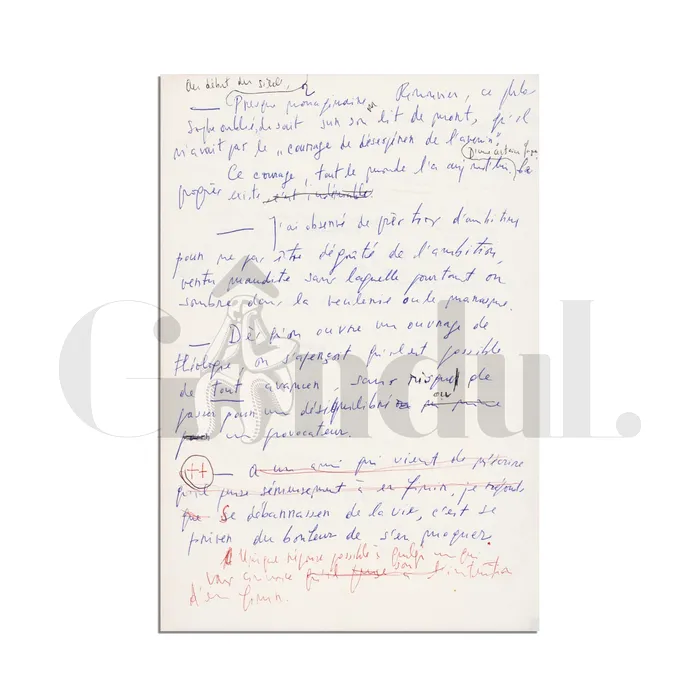 Au début du siècle,
— Presque nonagénaire, Renouvier, ce philo-
sophe oublié, disait sur son lit de mort, qu'il
n'avait pas le « courage de désespérer de l'avenir ».
D'une certaine façon
Ce courage, tout le monde l'a aujourd'hui. Le
progrès existe, c'est indéniable.
— J'ai observé de près trop d'ambitieux
pour ne pas être dégoûté de l'ambition,
vertu maudite sans laquelle pourtant on
sombre dans la veulerie ou le
— Dès qu'on ouvre un ouvrage de
théologie, on s'aperçoit qu'il est possible
de tout avancer, sans risquer de
passer pour un déséquilibré ou
pour un provocateur.
++ — A un ami qui vient de m'écrire
qu'il pense sérieusement à en finir, je réponds
que Se débarrasser de la vie, c'est se
priver du bonheur de s'en moquer.
Unique réponse possible à quelqu'un qui
vous annonce qu'il pense son l'intention
d'en finir.
Gondul.